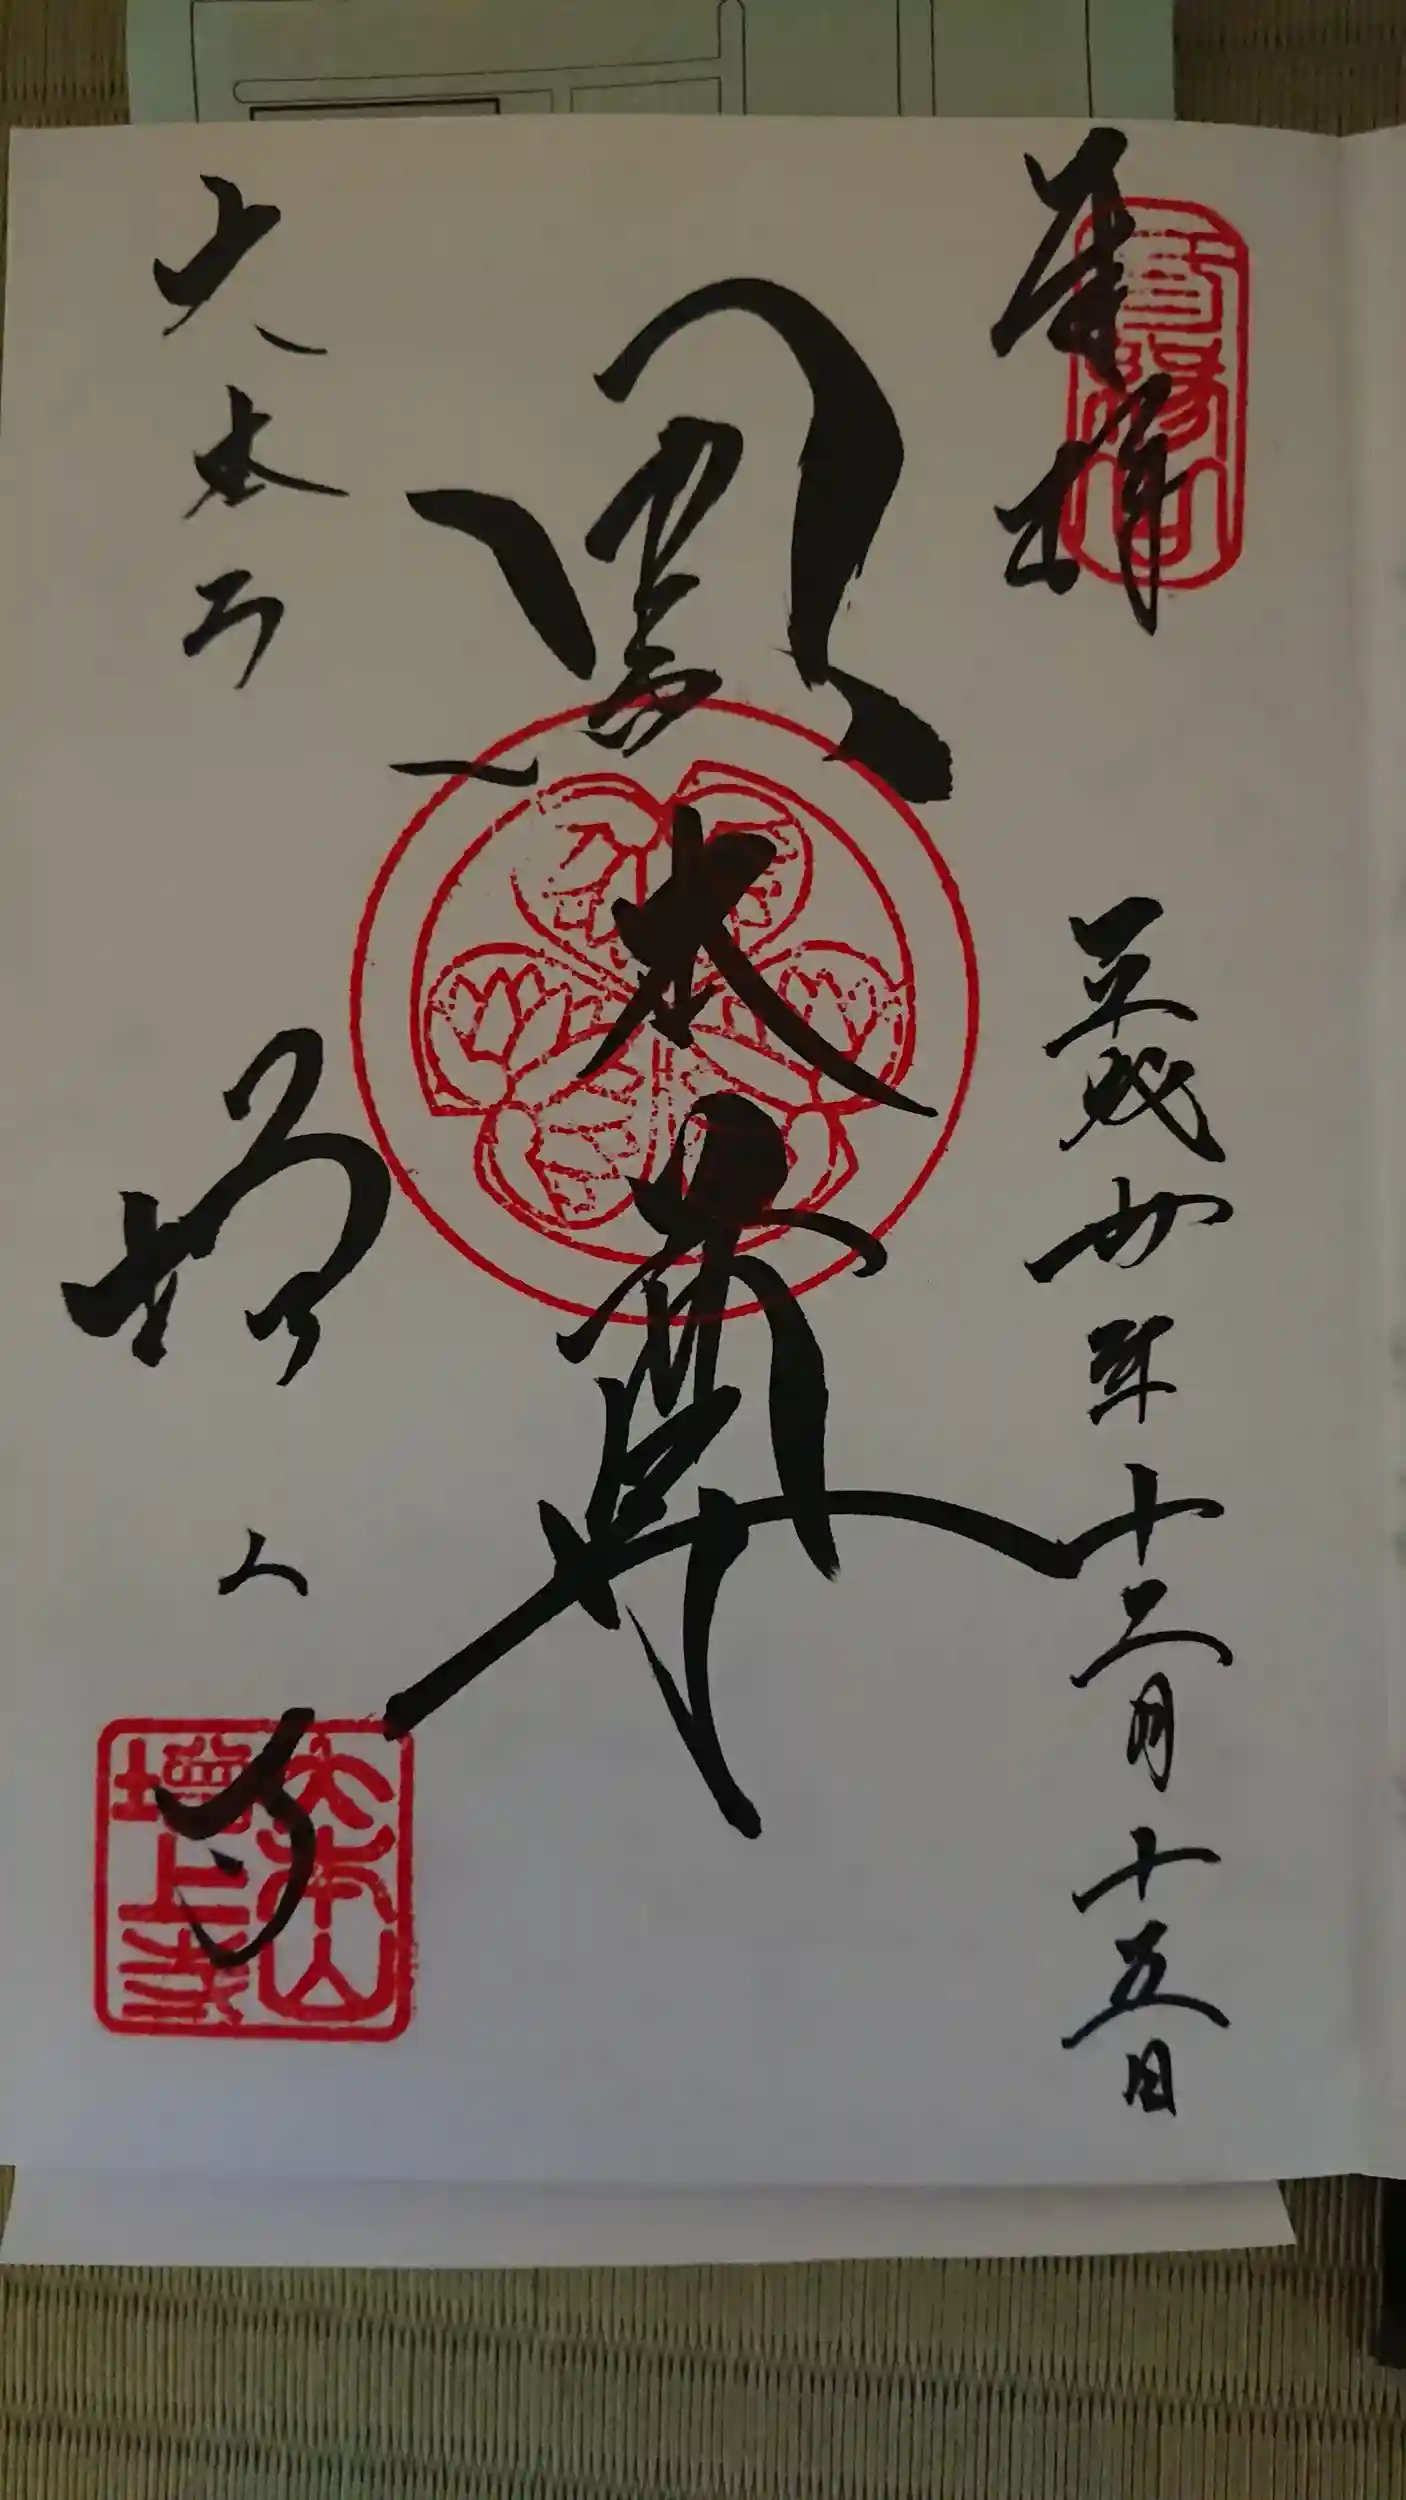 奉拝
平成廿年十二月十五日
三縁山
黒本尊
大本山
増上寺
大本山
増上寺